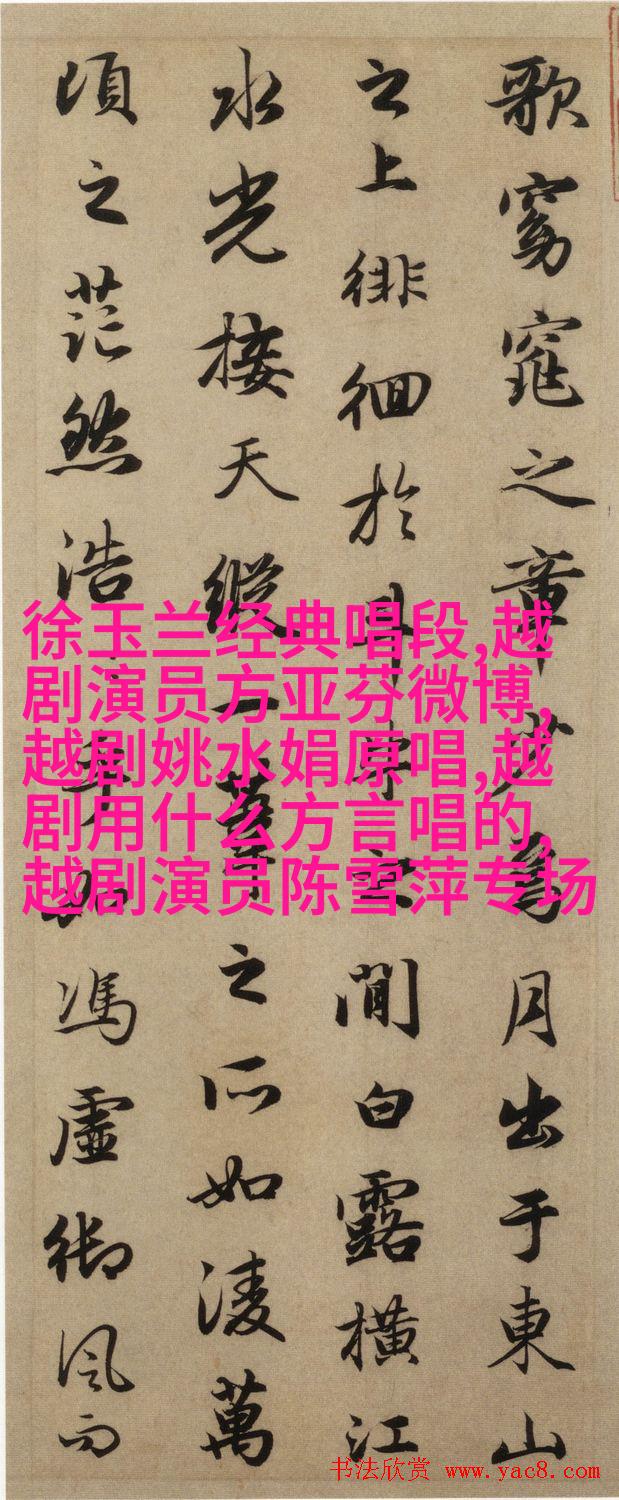 歌窈窕之章少焉月出于東山
之上徘徊於斗牛之間白露橫江
水光接天縱一葦之所如淩萬
頃之茫然浩浩乎如馮虛御風而
徐玉兰经典唱段,越
剧演员方亚芬微博,
越剧姚水娟原唱,越
剧用什么方言唱的,
越剧演员陈雪萍专场
书法欣赏 www.yac8.com